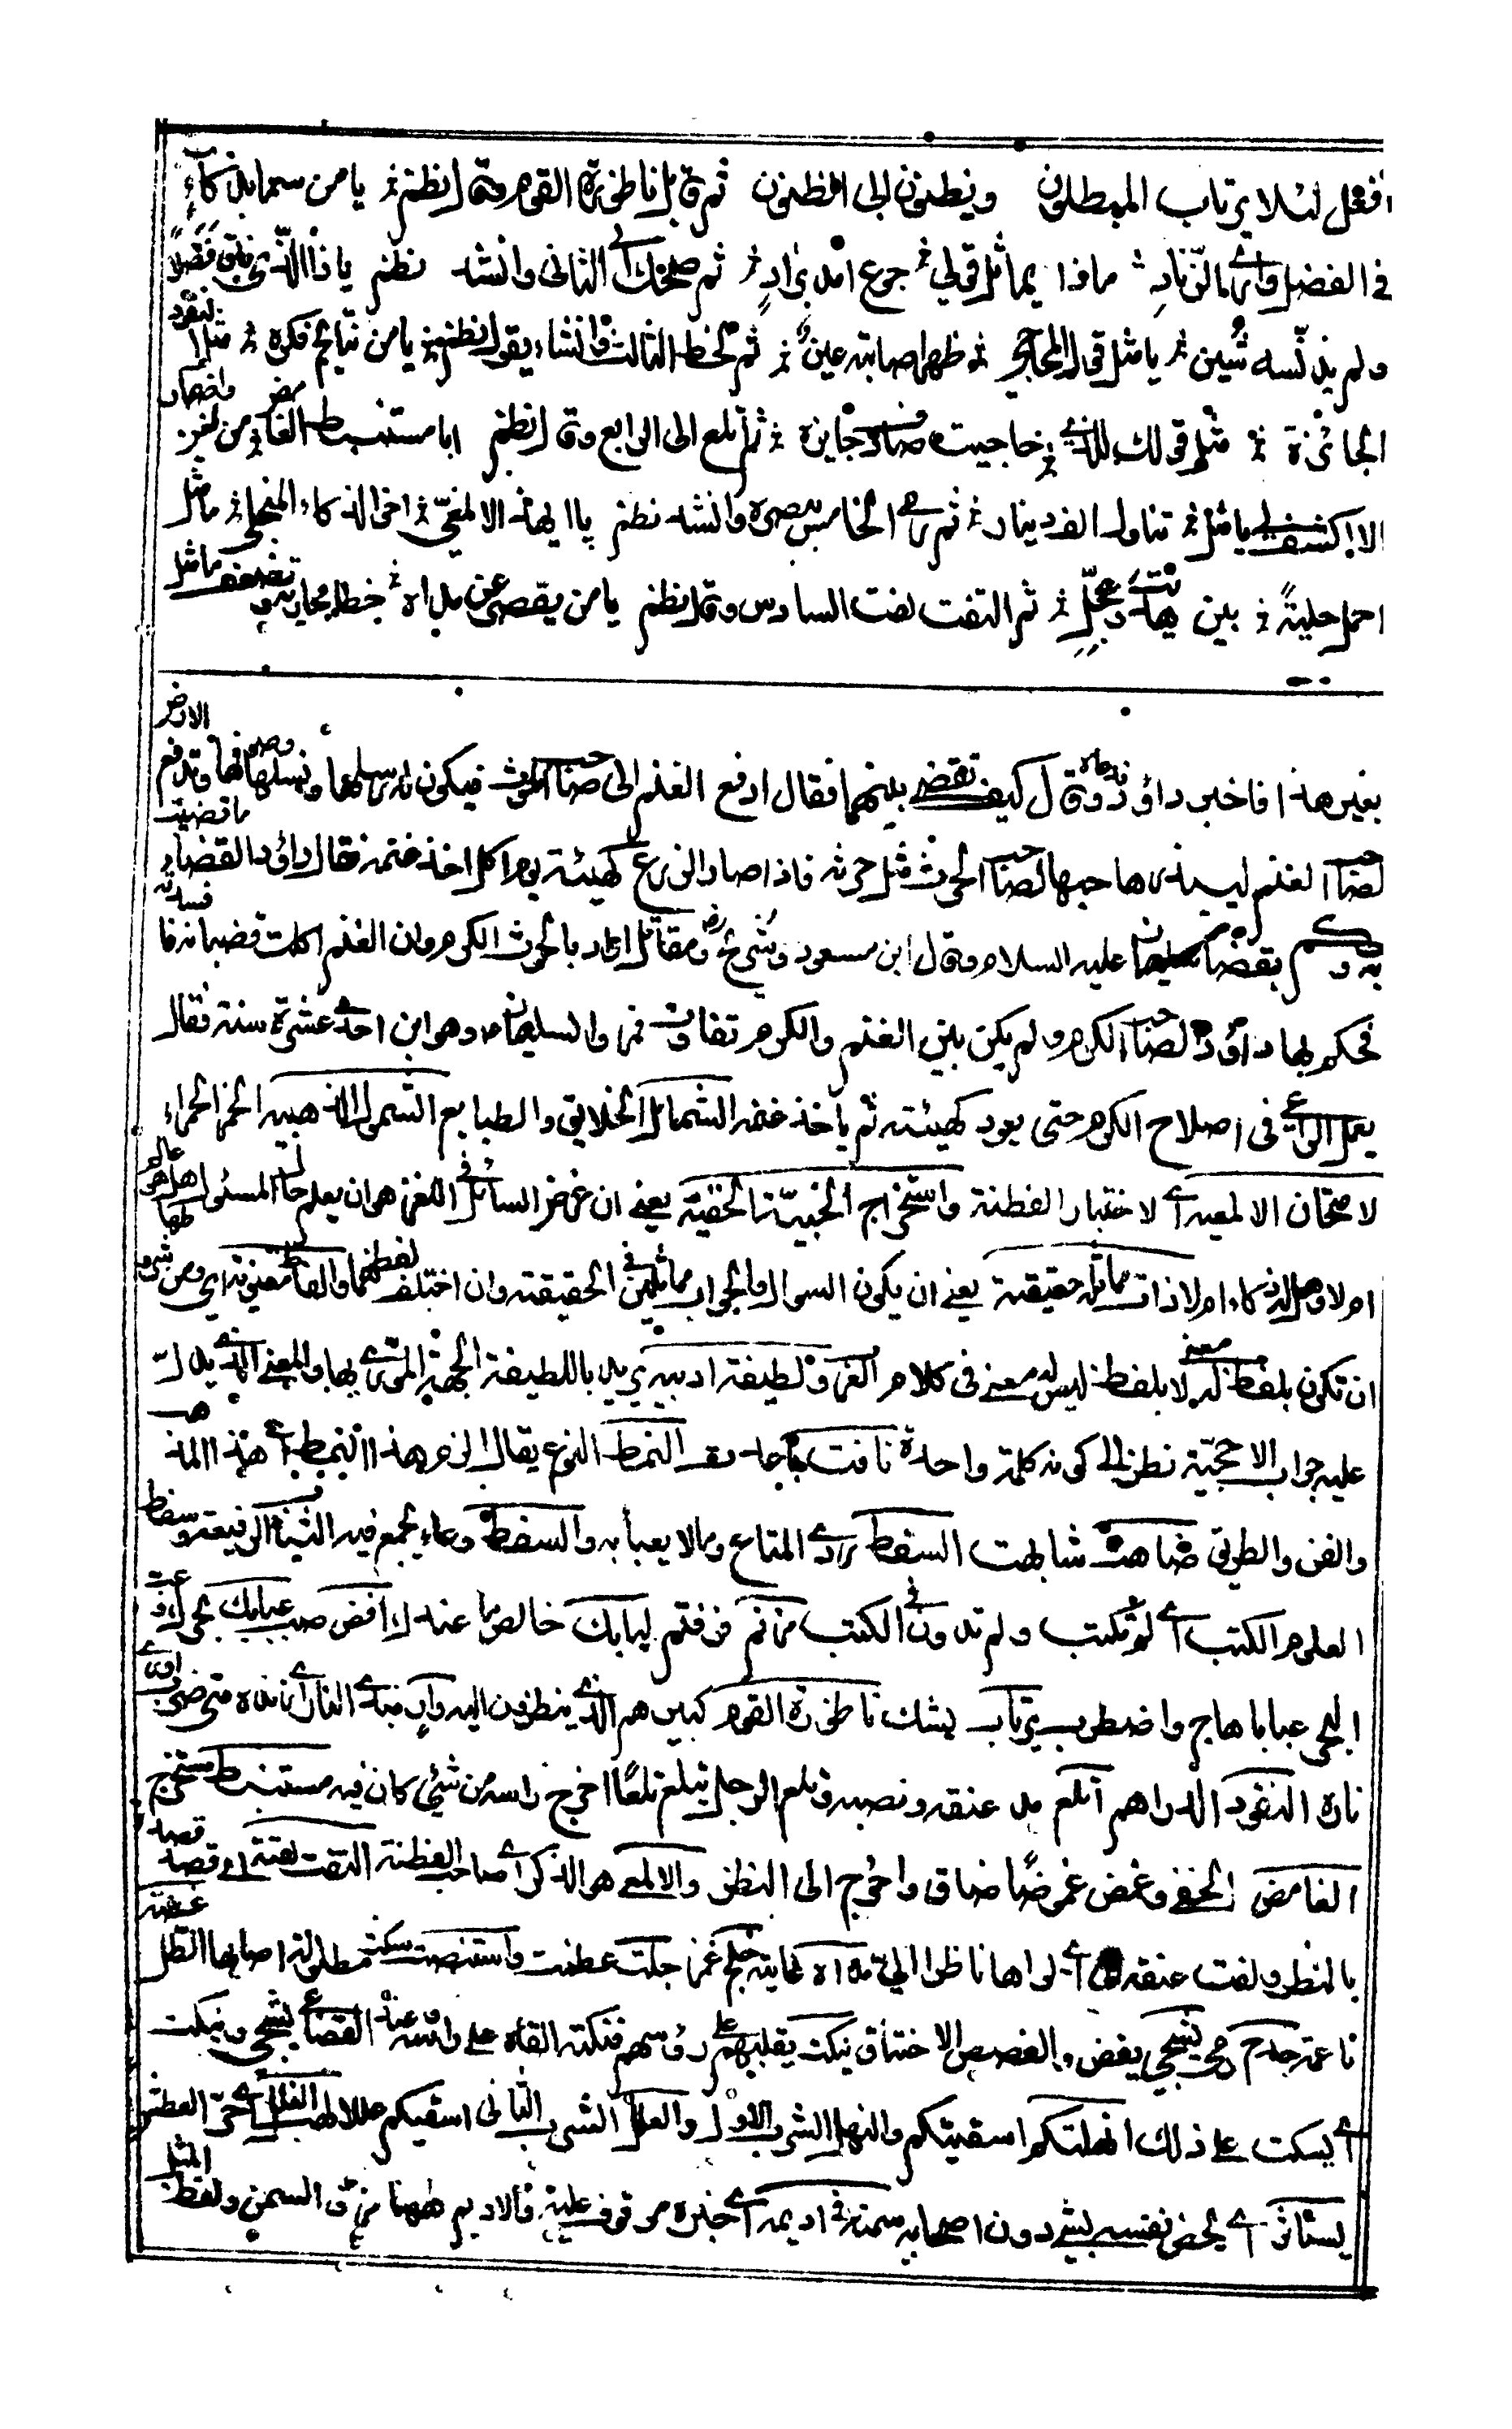 افعل لئلا يرتاب المبطلون ويظنون بي الظنون ثم قابل ناظورة القوم وقال نظم يا من سما بذكاء
في الفضل واري الزناد ماذا يماثل قولي جوع امد بزاد ثم ضحك الى الثاني وانشد نظم يا ذا الذي فاق فضلا
ولم يدنسه شين يا مثل قول المحاجي ظهر اصابته عين ثم لحظ الثالث وانشاء يقول نظم يا من نتائج فكره مثل النقود
الجائزة مثل قولك للذي حاجيت صادف جايزة ثم اتلع الى الرابع وقال نظم ايا مستنبط الغامض من لغز واضمار
الا اكشف لي ما مثل تناول الف دينار ثم رمى الخامس ببصره وانشد نظم يا ايهذا الالمعي اخو الذكاء المنجلي ما مثل
اهمل حلية بين هديت وعجل ثم التفت لفت السادس وقال نظم يا من يقصر عن مداه خطا مجاريه وتضعف ما مثل
بغير هذا فاخبر داؤد فدعاه وقال كيف تقضي بينهما فقال ادفع الغنم الى صاحب الحرث فيكون له رسلها ونسلها وصوفها وتدفع الارض
لصاحب الغنم ليبذرها حبها لصاحب الحرث مثل حرثه فاذا صار الزرع كهيئته يوم اكل اخذ غنمه فقال داؤد القضاء ما قضيت
به وحكم بقضاء سليمان عليه السلام وقال ابن مسعود وشريح ومقاتل اراد بالحرث الكرم وان الغنم اكلت قضبانه فافسدته
فحكم بها داؤد لصاحب الكرم ولم يكن بين الغنم والكرم تفاوت فمروا لسليمان وهو ابن احدى عشرة سنة فقال
يعمل الراعي في اصلاح الكرم حتى يعود كهيئته ثم ياخذ غنمه الشمائل الخلايق والطبايع الشمول الذهبية الخمر الحمراء
لامتحان الالمعية اي لاختبار الفطنة واستخراج الخبيّة الخفية يعني ان غرض السائل في اللغز هو ان يعلم حال المسئول هل هو عالم
ام لا وهل له ذكاء ام لا ذات مماثلة حقيقية يعني ان يكون السوال والجواب مماثلين في الحقيقة وان اختلف لفظهما والفاظ معنوية اي ومن شروطها
ان تكون بلفظ له معنى لا بلفظ ليس له معنى في كلام العرب ولطيفة ادبية يريد باللطيفة الجهة المورى بها والمعنى الذي يدل
عليه جواب الاحجية نظرا الى كونه كلمة واحدة نافت باعدت النمط النوع يقال الزم هذا النمط اي هذا المذهب
والفن والطريق ضاهت شابهت السقط ردي المتاع وما لا يعبأ به والسفط وعاء يجمع فيه الثياب الرفيعة وسفط
العلوم الكتب اي لم تكتب ولم تدون في الكتب مزنتم فزفتم لبابك خالص ما عندك افض صب عبابك بحرك وعب
البحر عبابا هاج واضطرب يرتاب يشك ناظورة القوم كبيرهم الذي ينظرون اليه واري مبدي النار زناده متى ضرب اورى
ناره النقود الدراهم اتلع مد عنقه ونصبه وتلع الرجل يتلع تلعا اخرج راسه من شيئ كان فيه مستنبط مستخرج
الغامض الخفي وغمض غموضا ضاق واحوج الى النظر والالمعي هو الذكي اي صاحب الفطنة التفت لفتة اي قصد قصده
بالنظر ولفت عنقه اي لواها ناظرا اليه مداه غايته خلج غمز جلت عطفت واستنصت سكت مطلولة اصابها الطل
ناعمة جدم يشجي يغض والغصص الاختناق ينكت يقلبهم على رؤسهم فنكته القاه على راسه
اي يسكت على ذلك انهلتكم اسقيتكم والنهل الشرب الاول والعلل الشرب الثاني اسقيكم عللا لهب الغلل اي حر العطش
يستاثر اي يخص نفسه بشيئ دون اصحابه سمنه في اديمه اي خيره موقوف عليه فالاديم ههنا زق السمن ولفظ المثل